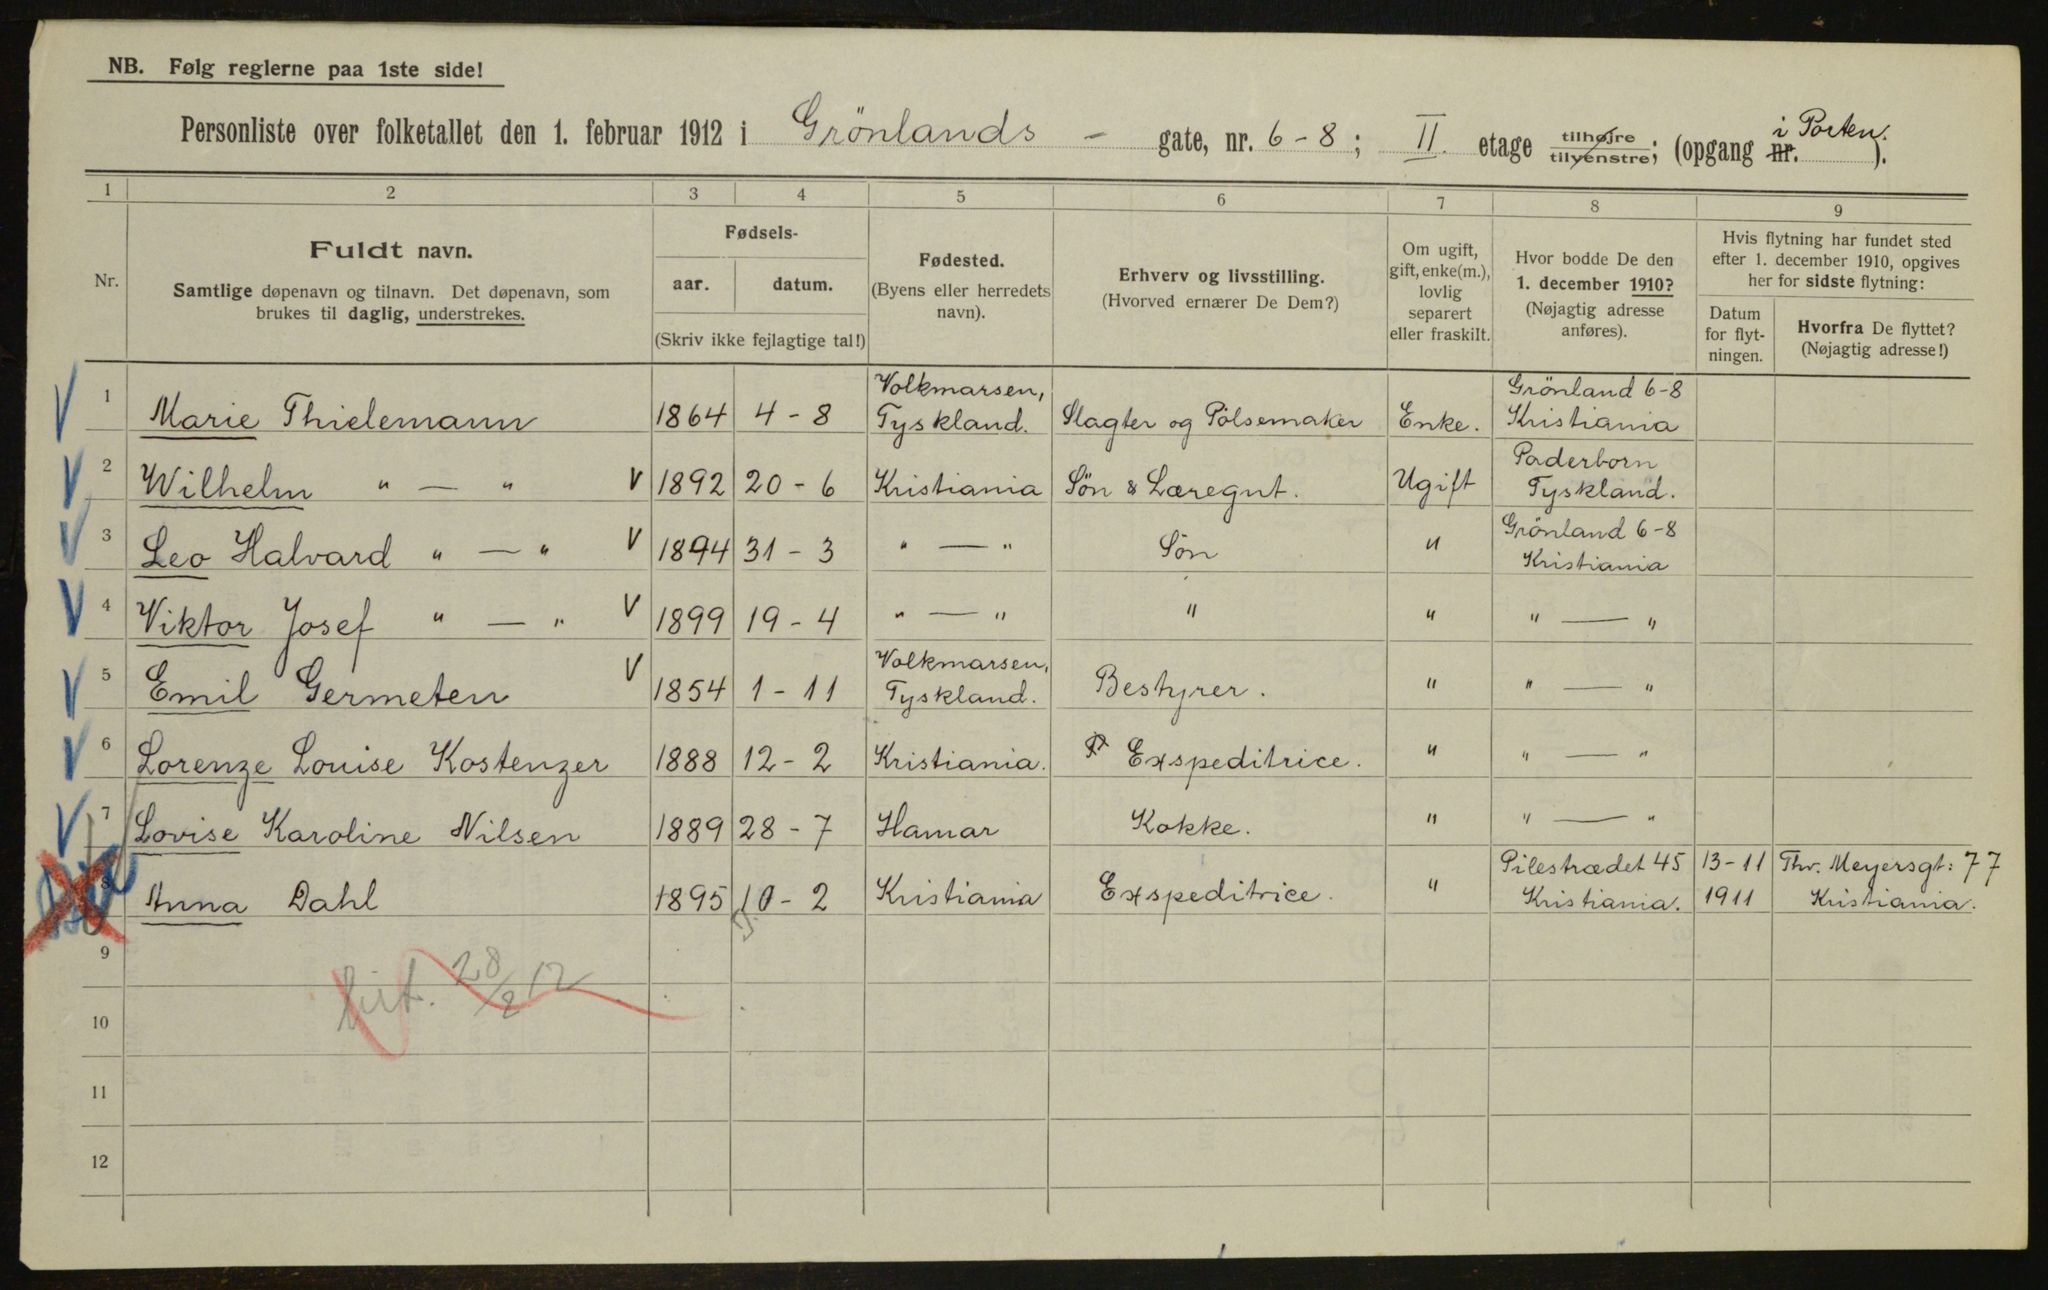 NB. Følg reglerne paa 1ste side!
Personliste over folketallet den 1. februar 1912 i Grönlands - gate, nr. 6-8; II. etage tilhøjre tilvenstre; (opgang nr. i Porten.).
1 2 3 4 5 6 7 8 9
Nr.
Fuldt navn.
Samtlige døpenavn og tilnavn. Det døpenavn, som
brukes til daglig, understrekes.
Fødsels-
aar. datum.
(Skriv ikke fejlagtige tal!)
Fødested.
(Byens eller herredets
navn).
Erhverv og livsstilling.
(Hvorved ernærer De Dem?)
Om ugift,
gift, enke(m.),
lovlig
separert
eller fraskilt.
Hvor bodde De den
1. december 1910?
(Nøjagtig adresse
anføres).
Hvis flytning har fundet sted
efter 1. december 1910, opgives
her for sidste flytning:
Datum
for flyt-
ningen.
Hvorfra De flyttet?
(Nøjagtig adresse!)
1 Marie Thielemann 1864 4-8 Volkmarsen, Tyskland. Slagter og Pölsemaker Enke. Grönland 6-8 Kristiania
2 Wilhelm " — " V 1892 20-6 Kristiania Sön & Læregut. Ugift Paderborn Tyskland.
3 Leo Halvard " — " V 1894 31-3 " — " Sön " Grönland 6-8 Kristiania
4 Viktor Josef " — " V 1899 19-4 " — " " " " — "
5 Emil Germeten V 1854 1-11 Volkmarsen, Tyskland. Bestyrer. " " — "
6 Lorenze Louise Kostenzer 1888 12-2 Kristiania. Exspeditrice. " " — "
7 Lovise Karoline Nilsen 1889 28-7 Hamar Kokke. " " — "
8 Anna Dahl 1895 10-2 Kristiania Exspeditrice. " Pilestrædet 45 Kristiania. 13-11 1911 Thv. Meyersgt: 77 Kristiania.
9
28/2 12
10
11
12